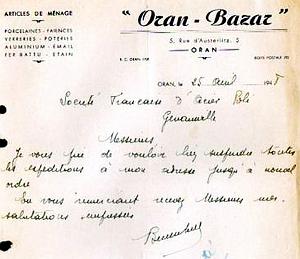 ARTICLES DE MÉNAGE
PORCELAINES - FAÏENCES
VERRERIES - POTERIES
ALUMINIUM - ÉMAIL
FER BATTU - ETAIN
"Oran - Bazar"
5, Rue d'Austerlitz, 5
ORAN
R. C. ORAN
BOITE POSTALE
ORAN, le 25 avril 194
Société Française d'Acier Poli
Messieurs,
Je vous prie de vouloir bien suspendre toutes
les expéditions à mon adresse jusqu'à nouvel
ordre
En vous remerciant recevez Messieurs mes
salutations empressées